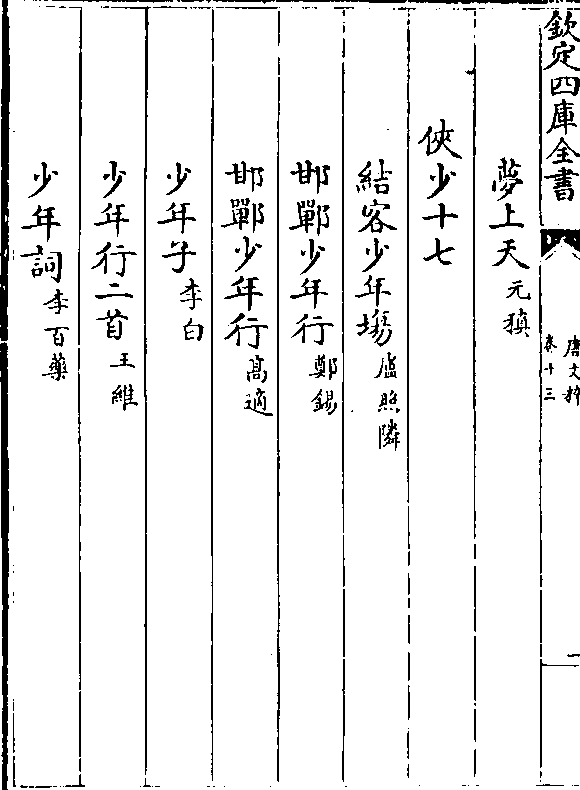 欽定四庫全書
唐文粹
卷十三
一
夢上天元稹
俠少十七
結客少年場盧照隣
邯鄲少年行鄭錫
邯鄲少年行高適
少年子李白
少年行二首王維
少年詞李百藥